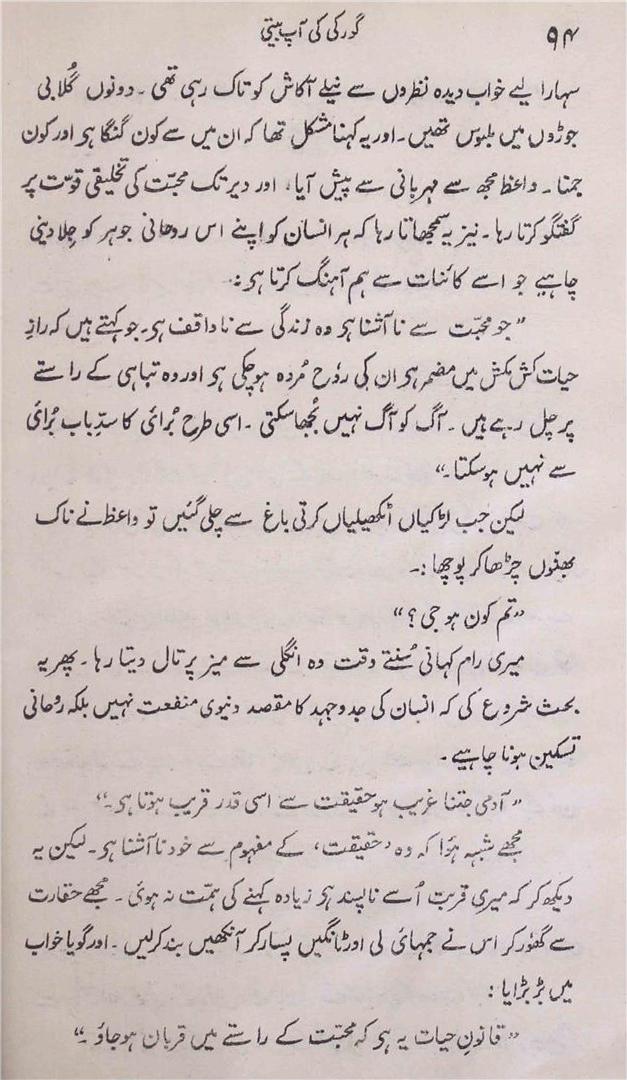 ۹۴ گورکی کی آپ بیتی
سہارا لیے خواب دیدہ نظروں سے نیلے آکاش کو تاک رہی تھی ۔ دونوں گُلابی
جوڑوں میں ملبوس تھیں ۔ اور یہ کہنا مشکل تھا کہ ان میں سے کون گنگا ہی اور کون
جمنا ۔ واعظ مجھ سے مہربانی سے پیش آیا، اور دیر تک محبّت کی تخلیقی قوّت پر
گفتگو کرتا رہا ۔ نیز یہ سمجھاتا رہا کہ ہر انسان کو اپنے اس روحانی جوہر کو جِلا دینی
چاہیے جو اسے کائنات سے ہم آہنگ کرتا ہی :۔
”جو محبّت سے نا آشنا ہی وہ زندگی سے ناواقف ہی۔ جو کہتے ہیں کہ رازِ
حیات کش مکش میں مضمر ہی ان کی رؤح مُردہ ہو چکی ہی اور وہ تباہی کے راستے
پر چل رہے ہیں ۔ آگ کو آگ نہیں بُجھا سکتی ۔ اسی طرح بُرائی کا سدِّباب بُرائی
سے نہیں ہو سکتا۔“
لیکن جب لڑکیاں اٹکھیلیاں کرتی باغ سے چلی گئیں تو واعظ نے ناک
بھنّوں چڑھا کر پوچھا :۔
”تم کون ہو جی ؟“
میری رام کہانی سُنتے وقت وہ انگلی سے میز پر تال دیتا رہا ۔ پھر یہ
بحث شروع کی کہ انسان کی جدوجہد کا مقصد دنیوی منفعت نہیں بلکہ روحانی
تسکین ہونا چاہیے ۔
”آدمی جتنا غریب ہو حقیقت سے اسی قدر قریب ہوتا ہی۔“
مجھے شبہہ ہوُا کہ وہ ’حقیقت‘ کے مفہوم سے خود نا آشنا ہی ۔ لیکن یہ
دیکھ کر کہ میری قربت اُسے ناپسند ہی زیادہ کہنے کی ہمّت نہ ہوئی ۔ مجھے حقارت
سے گھوٗر کر اس نے جمہائی لی اور ٹانگیں پسار کر آنکھیں بند کرلیں ۔ اور گویا خواب
میں بڑبڑایا :
”قانونِ حیات یہ ہی کہ محبّت کے راستے میں قربان ہو جاؤ ۔“